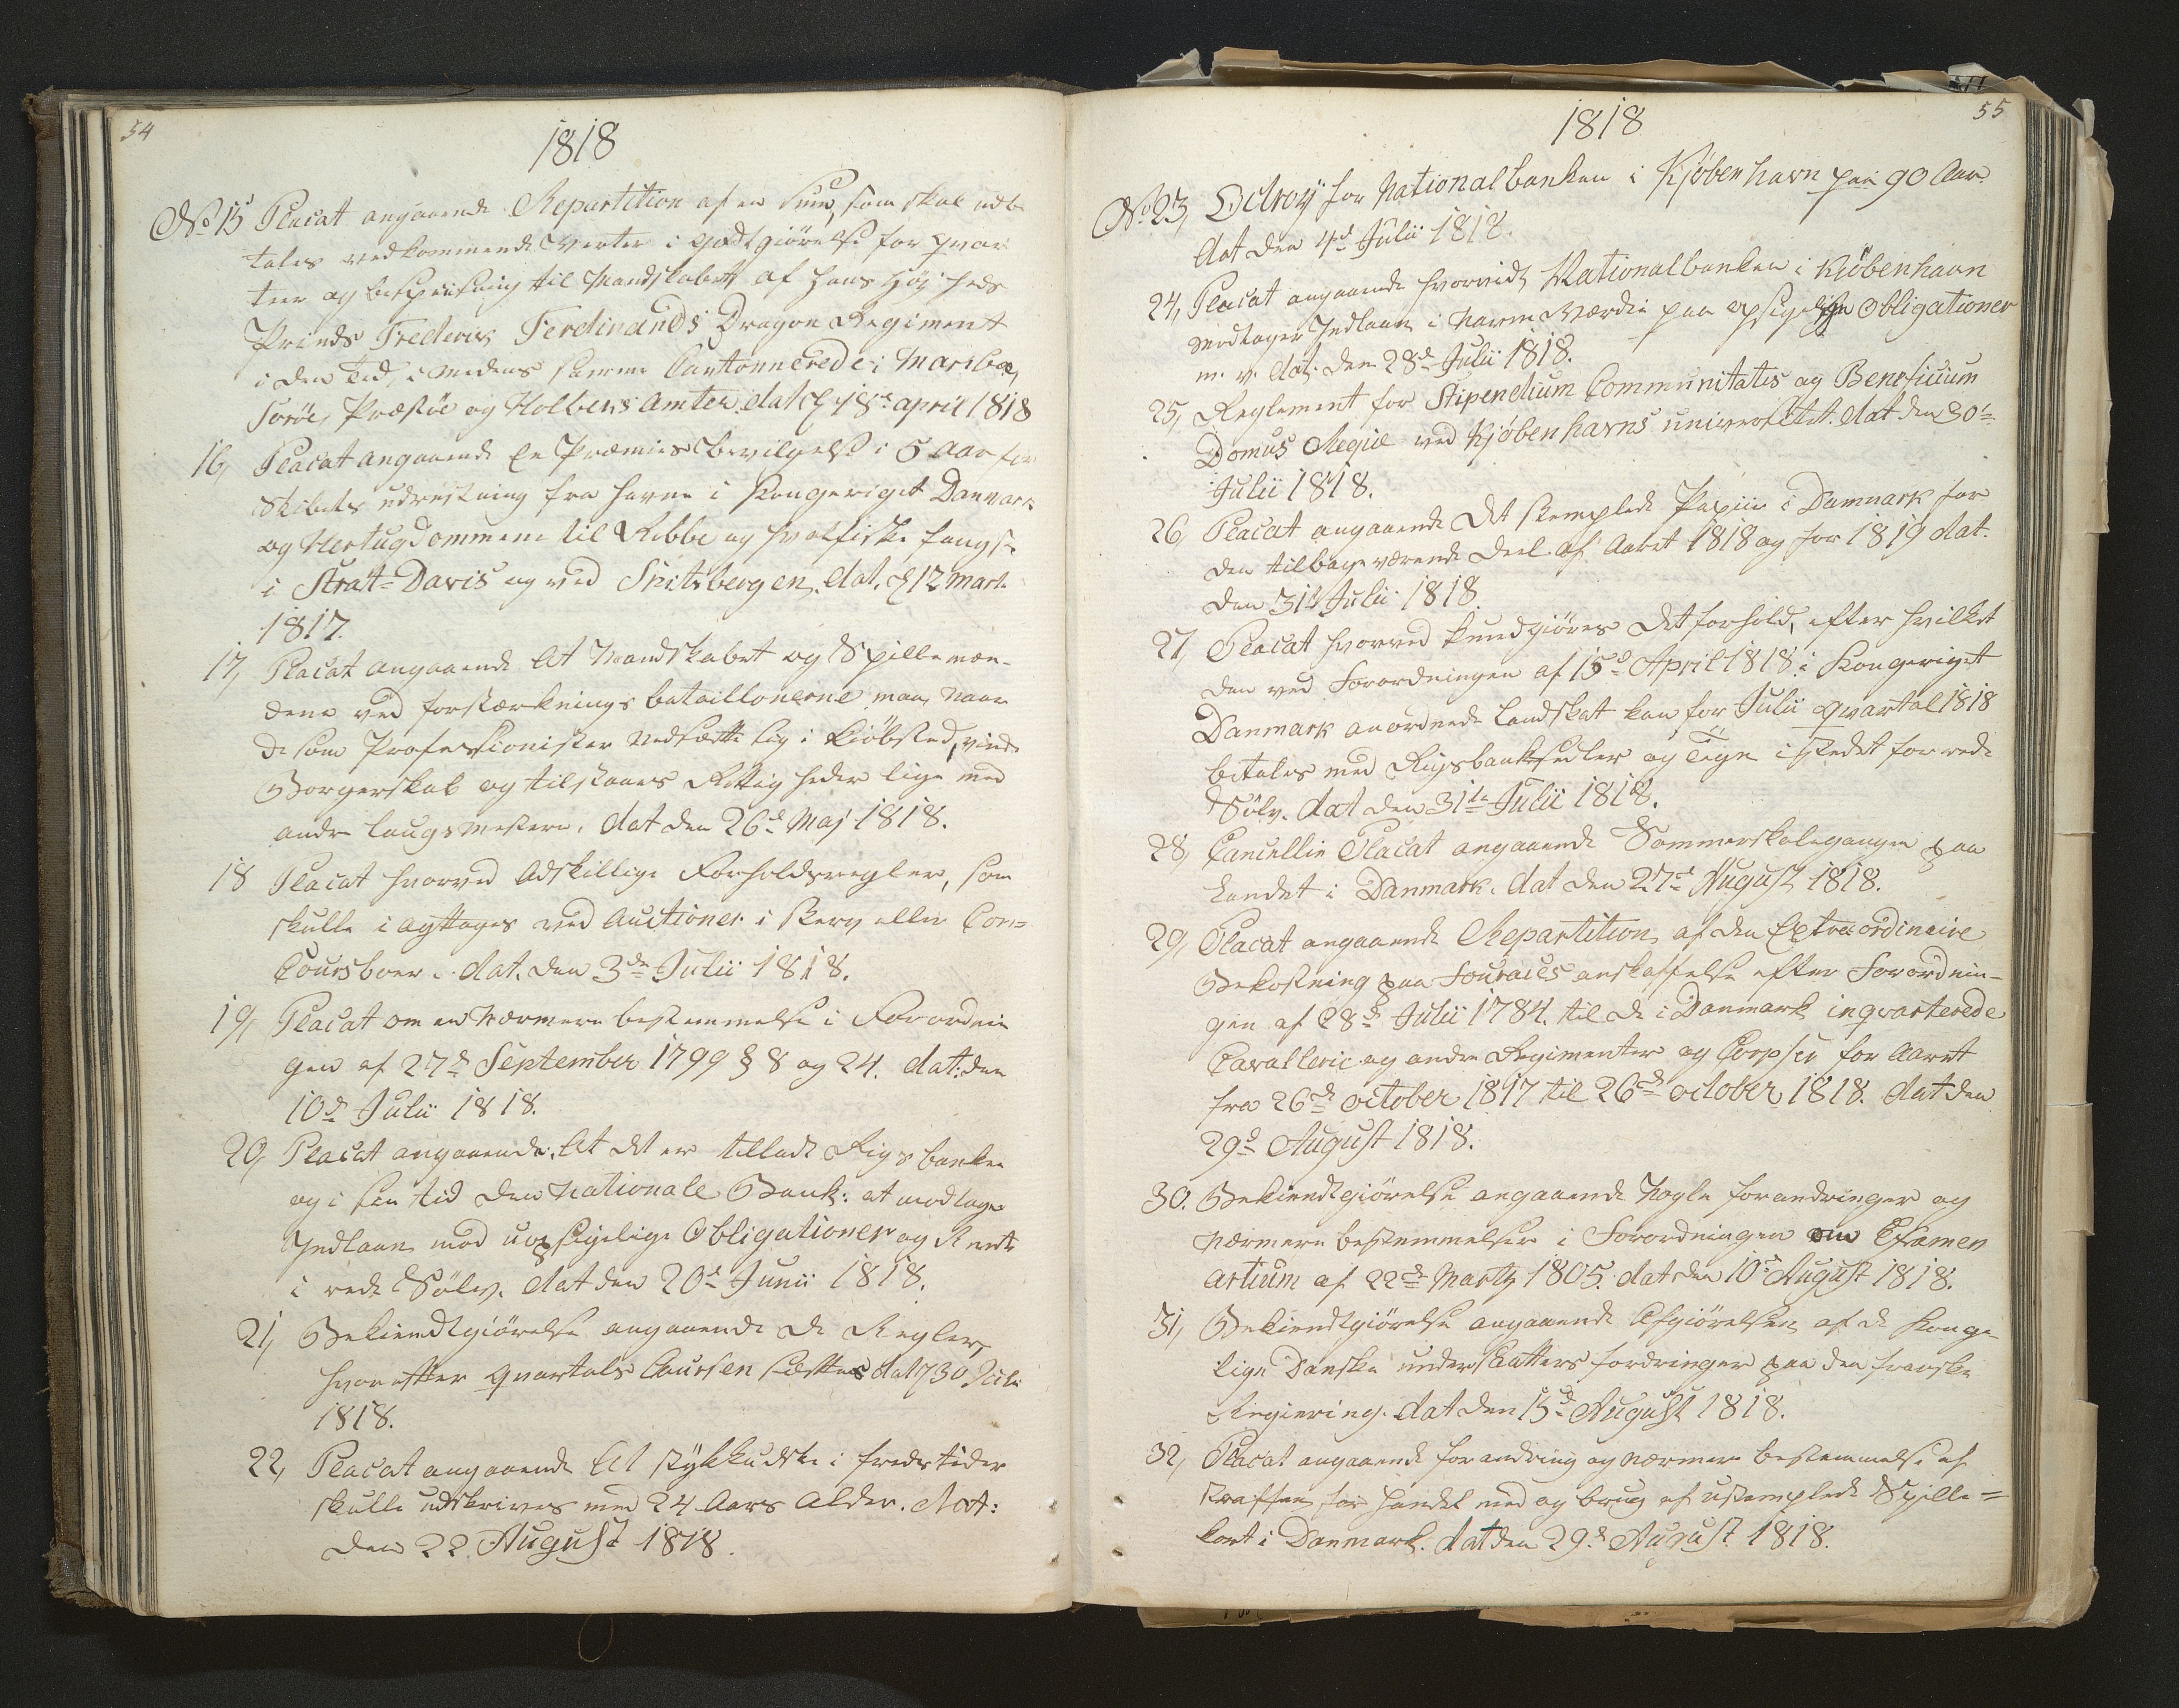 54
1818
No 15 Placat angaaende Repartition af en Sum, som skal udbe
tales vedkommende Verter i Godtgiörelse for qvar
teer og bespiisning til Mandskabet af Hans Høyheds
Prinds Frederik Ferdinands Dragon Regiment
i den Tid, imedens samme Cantonnerede i Mariboe,
Soröe, Præstöe og Holbeks Amter. dat d 18de april 1818
16, Placat angaaende En Præmies Bevilgelse i 5 Aar for
Skibets udrustning fra Havne i Kongeriget Danmark
og Hertugdommene til Robbe og Hvalfiske fangst
i Strat=Davis og ved Spitsbergen. dat. d 12 Marti
1817.
17, Placat angaaende At Mandskabet og Spillemæn-
dene ved forstærknings bataillonerne maa, naar
de som Professionister nedsætte sig i Kiöbsted, vinde
Borgerskab og tilstaaes Rettigheder lige med
andre laugsmestere. dat den 26d Maj 1818.
18 Placat hvorved Adskillige Forholdsregler, som
skulle iagttages ved Auctioner i Sterv eller Con=
Coursboer. dat. den 3de Julii 1818.
19, Placat om en nærmere bestemmelse i Forordnin
gen af 27d September 1799 § 8 og 24. dat: den
10d Julii 1818.
20, Placat angaaende. At det er tilladt Rigsbanken
og i sin tid den Nationale Bank: at modtage
Indlaan mod uopsigelige Obligationer og Rente
i rede Sölv. dat den 20d Junii 1818.
21, Bekiendtgiörelse angaaende de Regler,
hvorefter qvartals Coursen sættes dat d 30 Juli
1818.
22, Placat angaaende At stykkudske i fredstider
skulle udskrives med 24 Aars Alder. Dat:
den 22 August 1818.
55
1818
No 23, Octroy for Nationalbanken i Kjöbenhavn paa 90 Aar.
dat den 4d Julii 1818.
24, Placat angaaende hvorvidt Nationalbanken i Kiöbenhavn
modtager Indlaan i Navne Værdie paa opsigelige Obligationer
m. v. dat. den 28d Julii 1818.
25, Reglement for Stipendium Communitatis og Beneficium
Domus Regiæ ved Kjöbenhavns universitet. dat den 30te
Julii 1818.
26, Placat angaaende det stemplede Papiir i Danmark for
den tilbageværende Deel af Aaret 1818 og for 1819 dat.
den 31te Julii 1818.
27, Placat hvorved kundgiöres det forhold, efter hvilket
den ved Forordningen af 15d April 1818 i Kongeriget
Danmark anordnede Landskat kan for Julii Qvartal 1818
betales med Rigsbanksedler og Tegn istedet for rede
Sölv. dat den 31te Julii 1818.
28, Cancellie Placat angaaende Sommerskolegangen paa
Landet i Danmark. dat den 27d August 1818.
29, Placat angaaende Repartition af den Extraordinaire
Bekostning paa Fourages anskaffelse efter Forordnin-
gen af 28d Julii 1784. til de i Danmark inqvarterede
Cavallerie og andre Regimenter og Corpser for Aaret
fra 26d october 1817 til 26d october 1818. dat den
29d August 1818.
30. Bekiendtgiörelse angaaende Nogle forandringer og
nærmere bestemmelser i Forordningen om Examen
artium af 22d Martz 1805. dat den 10d August 1818.
31, Bekiendtgiörelse angaaende Afgiörelsen af de Konge
lige Danske undersaatters fordringer paa den franske
Regiering. dat den 15d August 1818.
32, Placat angaaende forandring og nærmere bestemmelse af
Straffen for handel med og brug af ustemplede Spille=
kort i Danmark. dat den 29d August 1818.